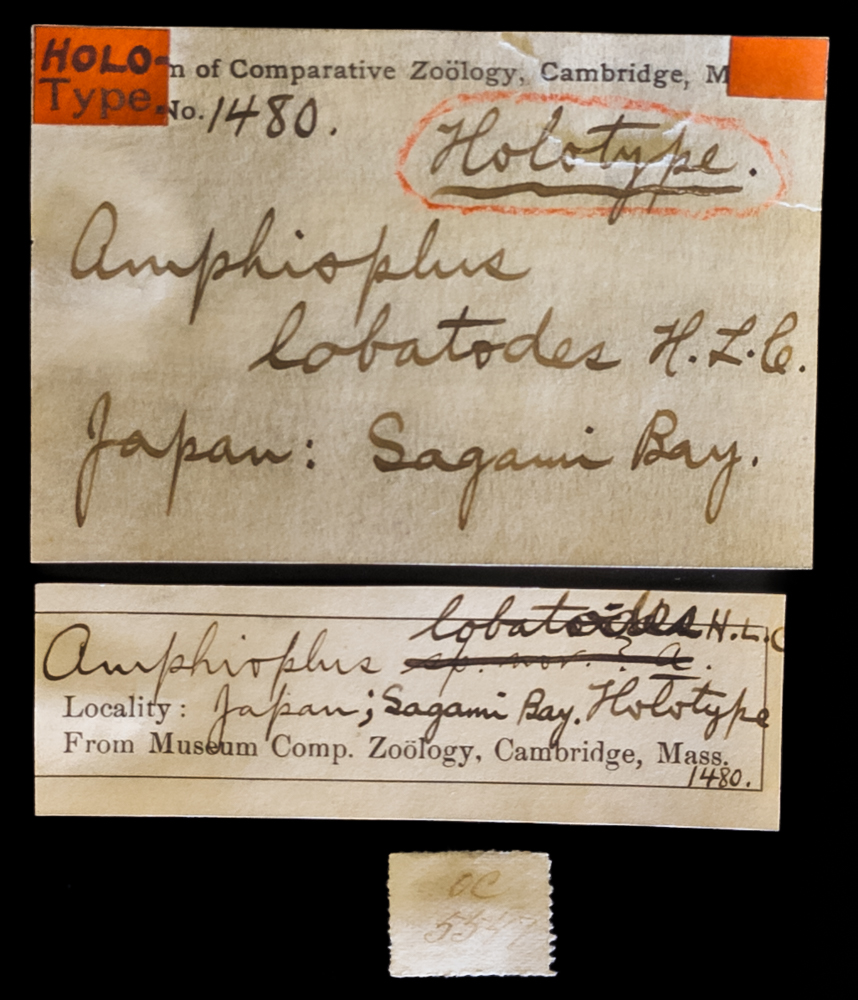 HOLO-
Type.
m of Comparative Zoölogy, Cambridge, M
No. 1480.
Holotype.
Amphioplus
lobatodes H.L.C.
Japan: Sagami Bay.
lobatodes H.L.C
Amphioplus sp. nov.? a.
Locality: Japan; Sagami Bay. Holotype
From Museum Comp. Zoölogy, Cambridge, Mass.
1480.
OC